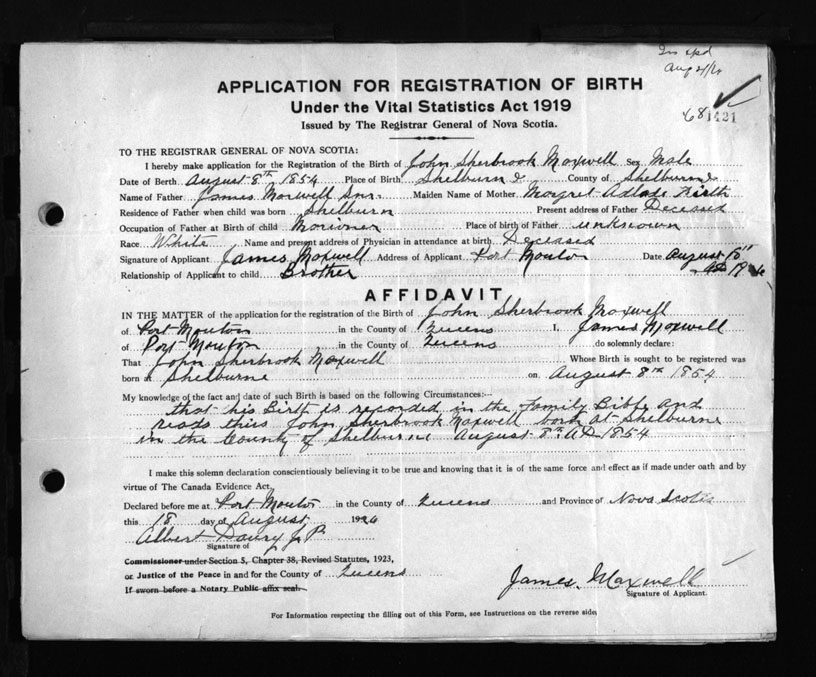 Aug
APPLICATION FOR REGISTRATION OF BIRTH
Under the Vital Statistics Act 1919
Issued by The Registrar General of Nova Scotia.
68 1421
TO THE REGISTRAR GENERAL OF NOVA SCOTIA:
I hereby make application for the Registration of the Birth of John Sherbrook Maxwell Sex Male
Date of Birth August 8th 1854 Place of Birth Shelburne County of Shelburne
Name of Father James Maxwell Snr. Maiden Name of Mother Margret
Residence of Father when child was born Shelburn Present address of Father Deceased
Occupation of Father at Birth of child Marioner Place of birth of Father unknown
Race White Name and present address of Physician in attendance at birth Deceased
Signature of Applicant James Maxwell Address of Applicant Port Mouton Date August
Relationship of Applicant to child Brother AD 19
AFFIDAVIT
IN THE MATTER of the application for the registration of the Birth of John Sherbrook Maxwell
of Port Mouton in the County of Queens I, James Maxwell
of Port Mouton in the County of Queens do solemnly declare:
That John Sherbrook Maxwell Whose Birth is sought to be registered was
born at Shelburne on August 8th 1854
My knowledge of the fact and date of such Birth is based on the following Circumstances:—
that his Birth is recorded in the Family Bible and
reads thus John Sherbrook Maxwell born at Shelburne
in the County of Shelburne August 8th AD 1854
I make this solemn declaration conscientiously believing it to be true and knowing that it is of the same force and effect as if made under oath and by
virtue of The Canada Evidence Act,
Declared before me at Port Mouton in the County of Queens and Province of Nova Scotia
this 18 day of August 1926
Albert Daury J.P.
Signature of
Commissioner under Section 5, Chapter 38, Revised Statutes, 1923,
or Justice of the Peace in and for the County of Queens
If sworn before a Notary Public affix seal.
James Maxwell
Signature of Applicant.
For Information respecting the filling out of this Form, see Instructions on the reverse side.